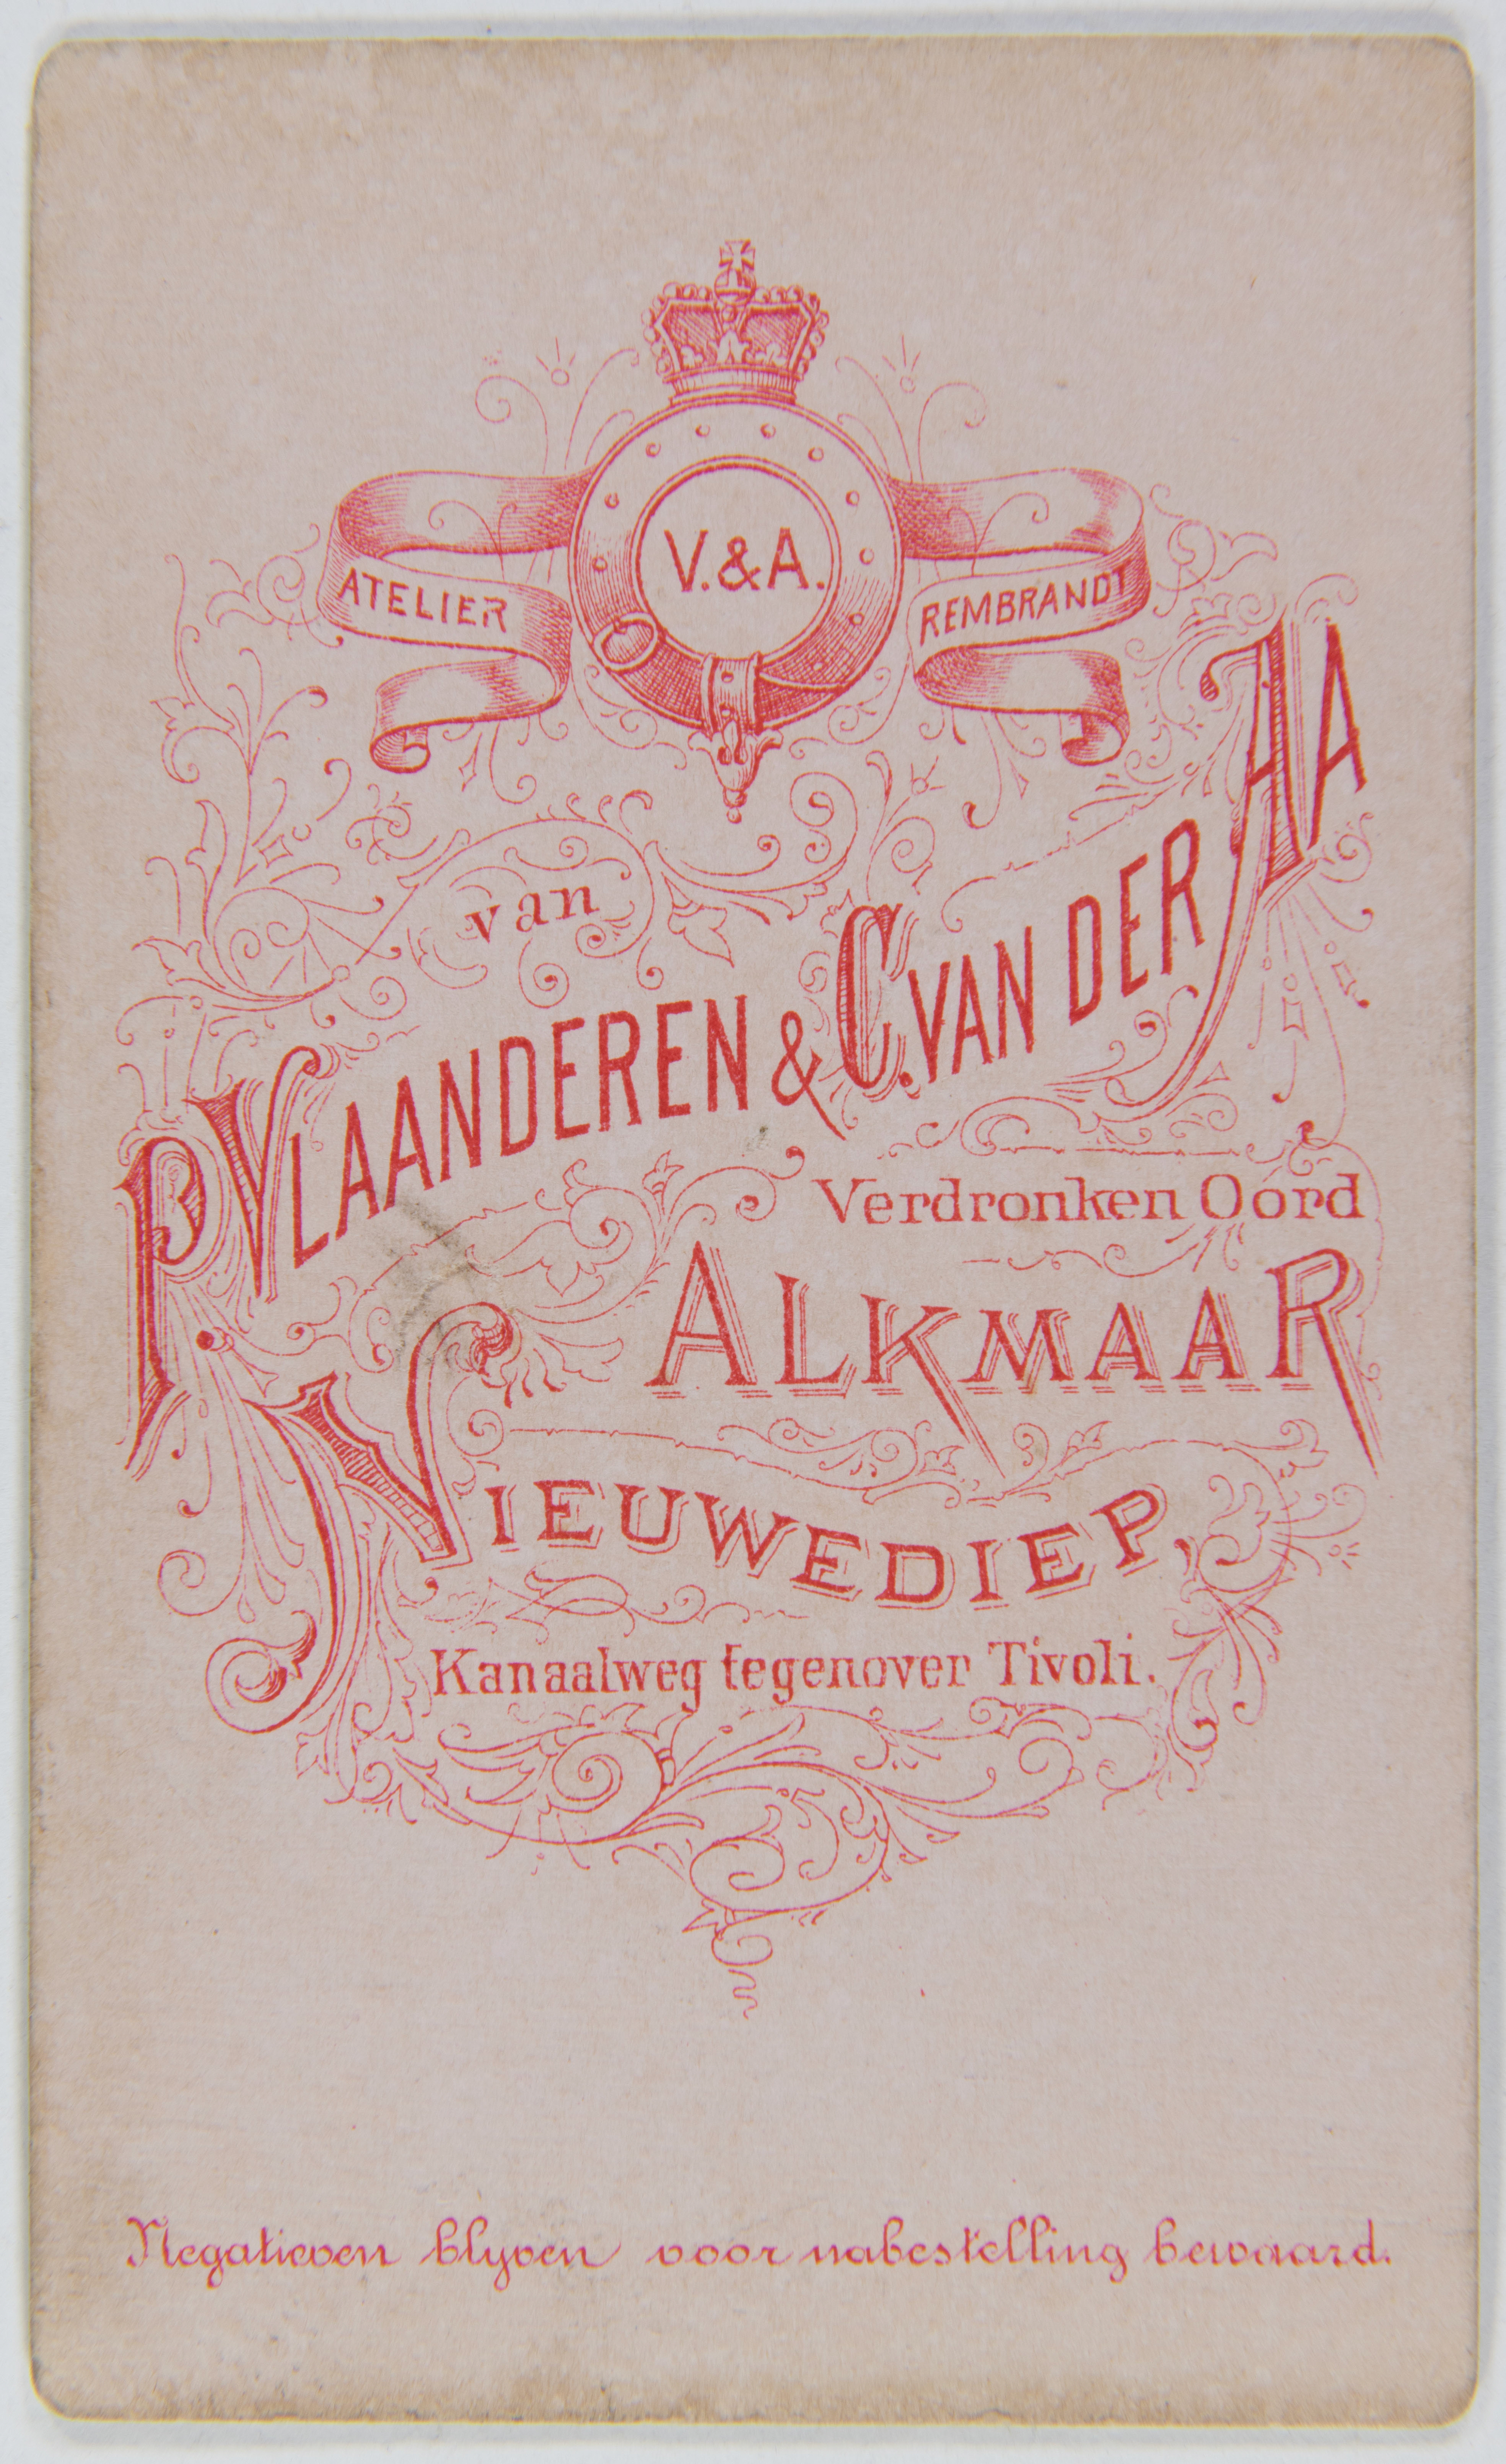 V. & A.
ATELIER REMBRANDT
van
P. VLAANDEREN & C. VAN DER AA
Verdronken Oord
ALKMAAR
NIEUWEDIEP,
Kanaalweg tegenover Tivoli.
Negatieven blyven voor nabestelling bewaard.